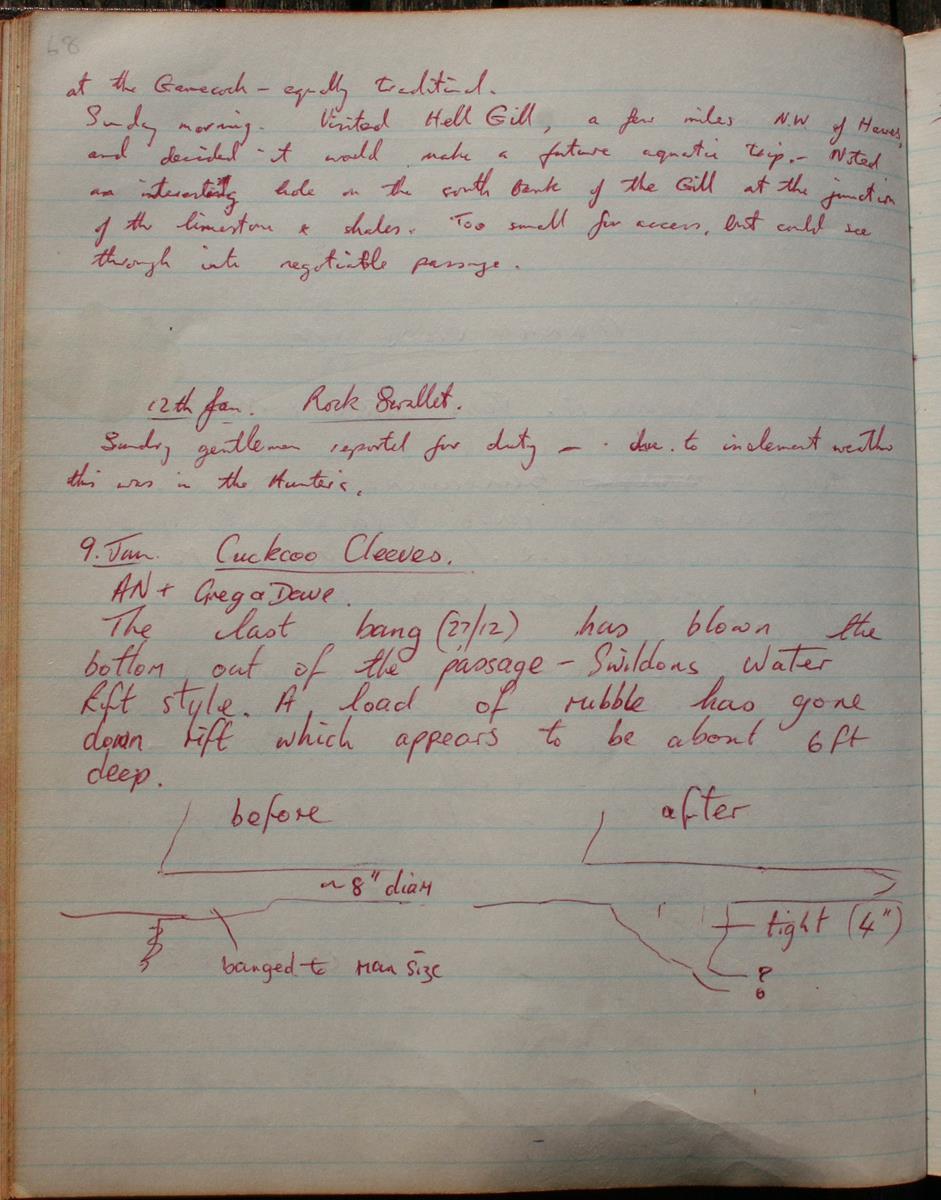 68
at the Gamecock - equally traditional.
Sunday morning. Visited Hell Gill, a few miles N.W of Hawes,
and decided it would make a future aquatic trip. - Noted
an interesting hole on the south bank of the Gill at the junction
of the limestone & shales. Too small for access, but could see
through into negotiable passage.
12th Jan. Rock Swallet.
Sundry gentlemen reported for duty - due to inclement weather
this was in the Hunters.
9. Jan. Cuckoo Cleeves.
AN + Greg a Dave.
The last bang (27/12) has blown the
bottom out of the passage - Swildons Water
Rift style. A load of rubble has gone
down rift which appears to be about 6ft
deep.
before
after
~ 8" diam
tight (4")
banged to man size
?